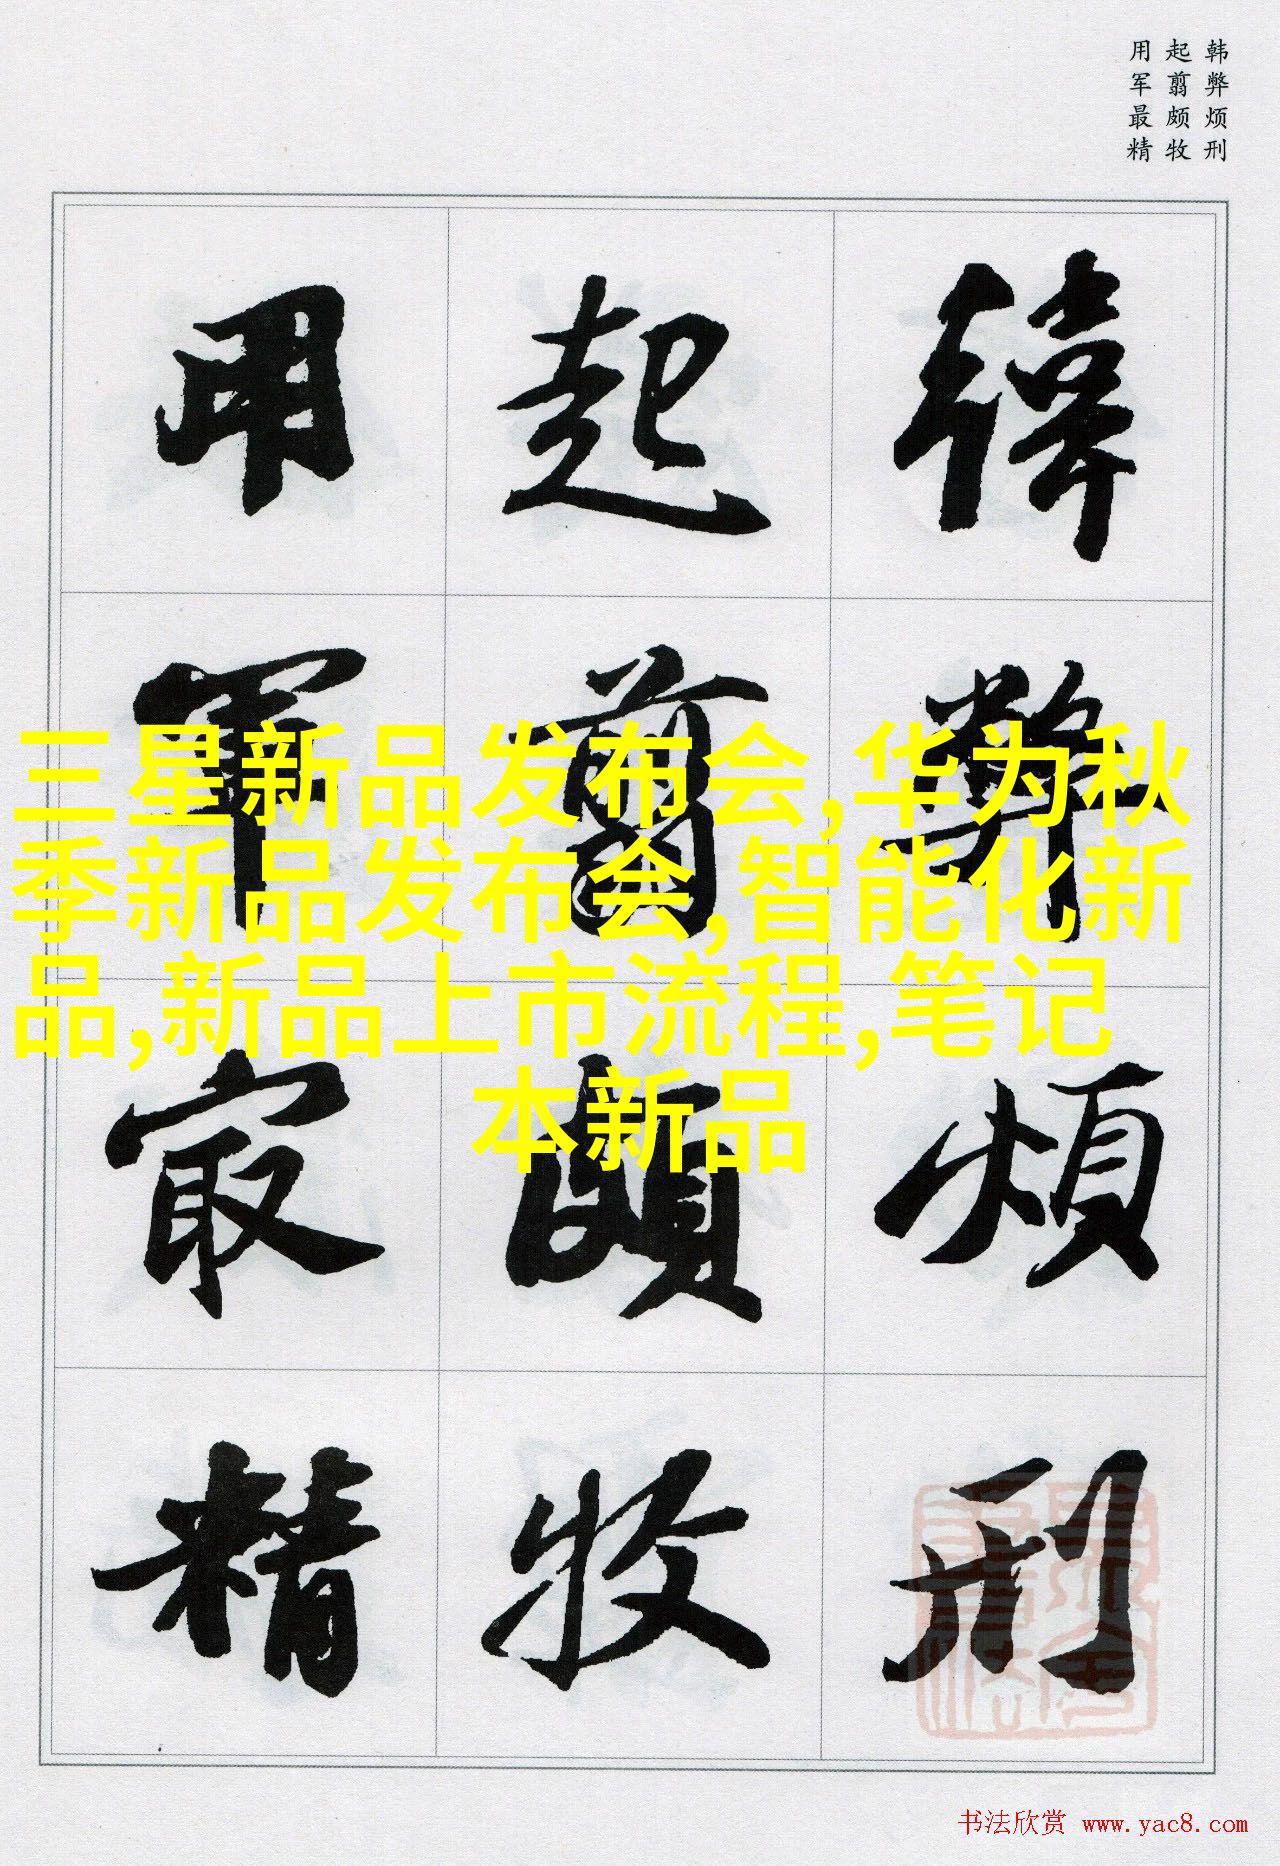 韩弊烦刑
起翦颇牧
用军最精
韩弊烦刑
起翦颇牧
用军最精
三星新品发布会,华为秋
季新品发布会,智能化新
品,新品上市流程,笔记
本新品
书法欣赏 www.yac8.com